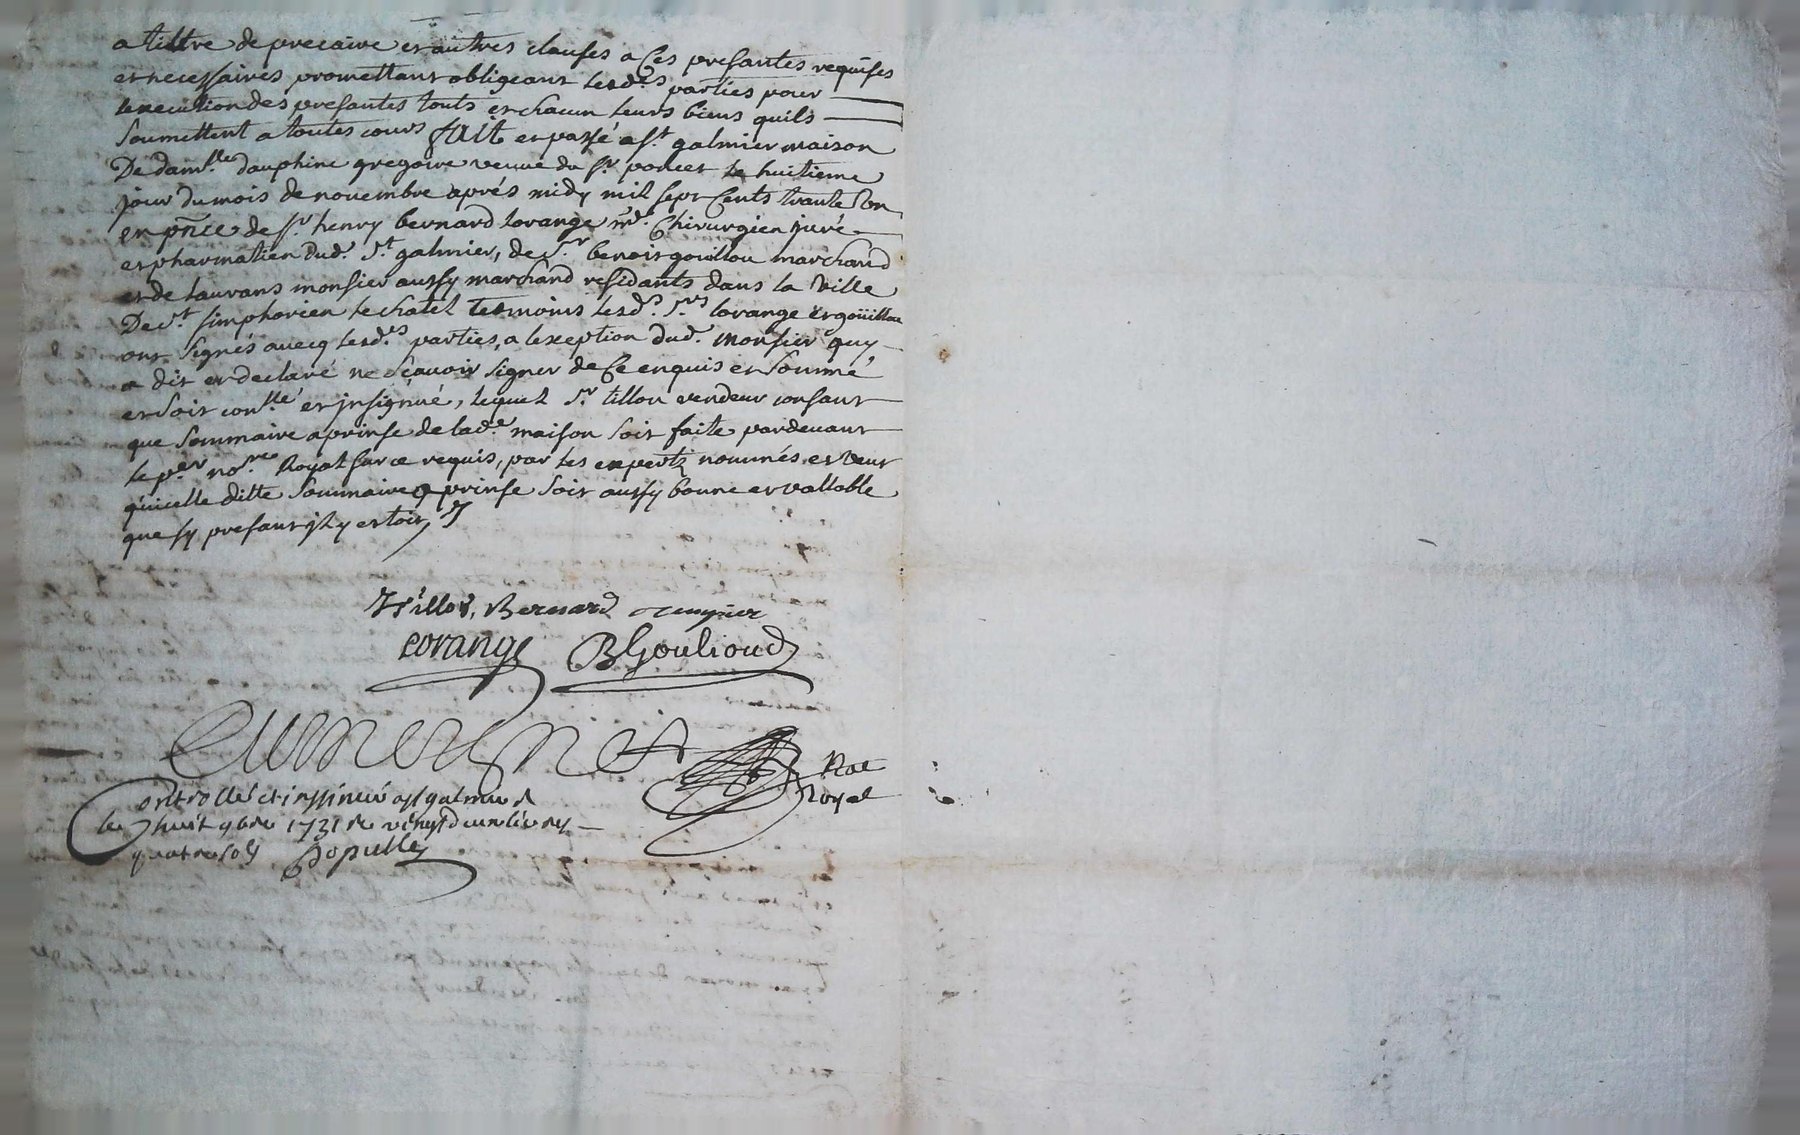 a tiltre de precaire et autres clauses a Ces presantes requises
et necessaires promettant obligeant lesd.es parties pour
lexecution des presantes touts et chacun leurs biens quils
soumettent a toutes cours fait et passé a st. galmier maison
De dam.lle dauphine gregoire veuve du sr. poncet le huitieme
jour du mois de novembre aprés midy mil sept Cents trante Un
en pñce de sr. henry bernard lorange m.e Chirurgien juré
et pharmatien dud. st. galmier, de sr. benoit gouillou marchand
et de laurans monsier aussy marchand residants dans la Ville
De st. simphorien le chatel temoins lesd.s srs. lorange et goüillou
ont signés avecq lesd.es parties, a lexeption dud. monsier quy
a dit et declaré ne sçavoir signer de Ce enquis et sommé
et soit con.llé et jnsignué, lequel sr. tillou vendeur consant
que sommaire aprinse de lad.e maison soit faite pardevant
le p.er no.re Royal sur ce requis, par les experts nommés et veut
quicelle ditte sommaire aprinse soit aussy bonne et vallable
que sy presant jl y estoit
Tillou, Bernard
Lorange BGoulioud
Not
Royal
Controllé et insinué a st galmier
le huit 9bre 1731 re vingt deux livres
quatre sols